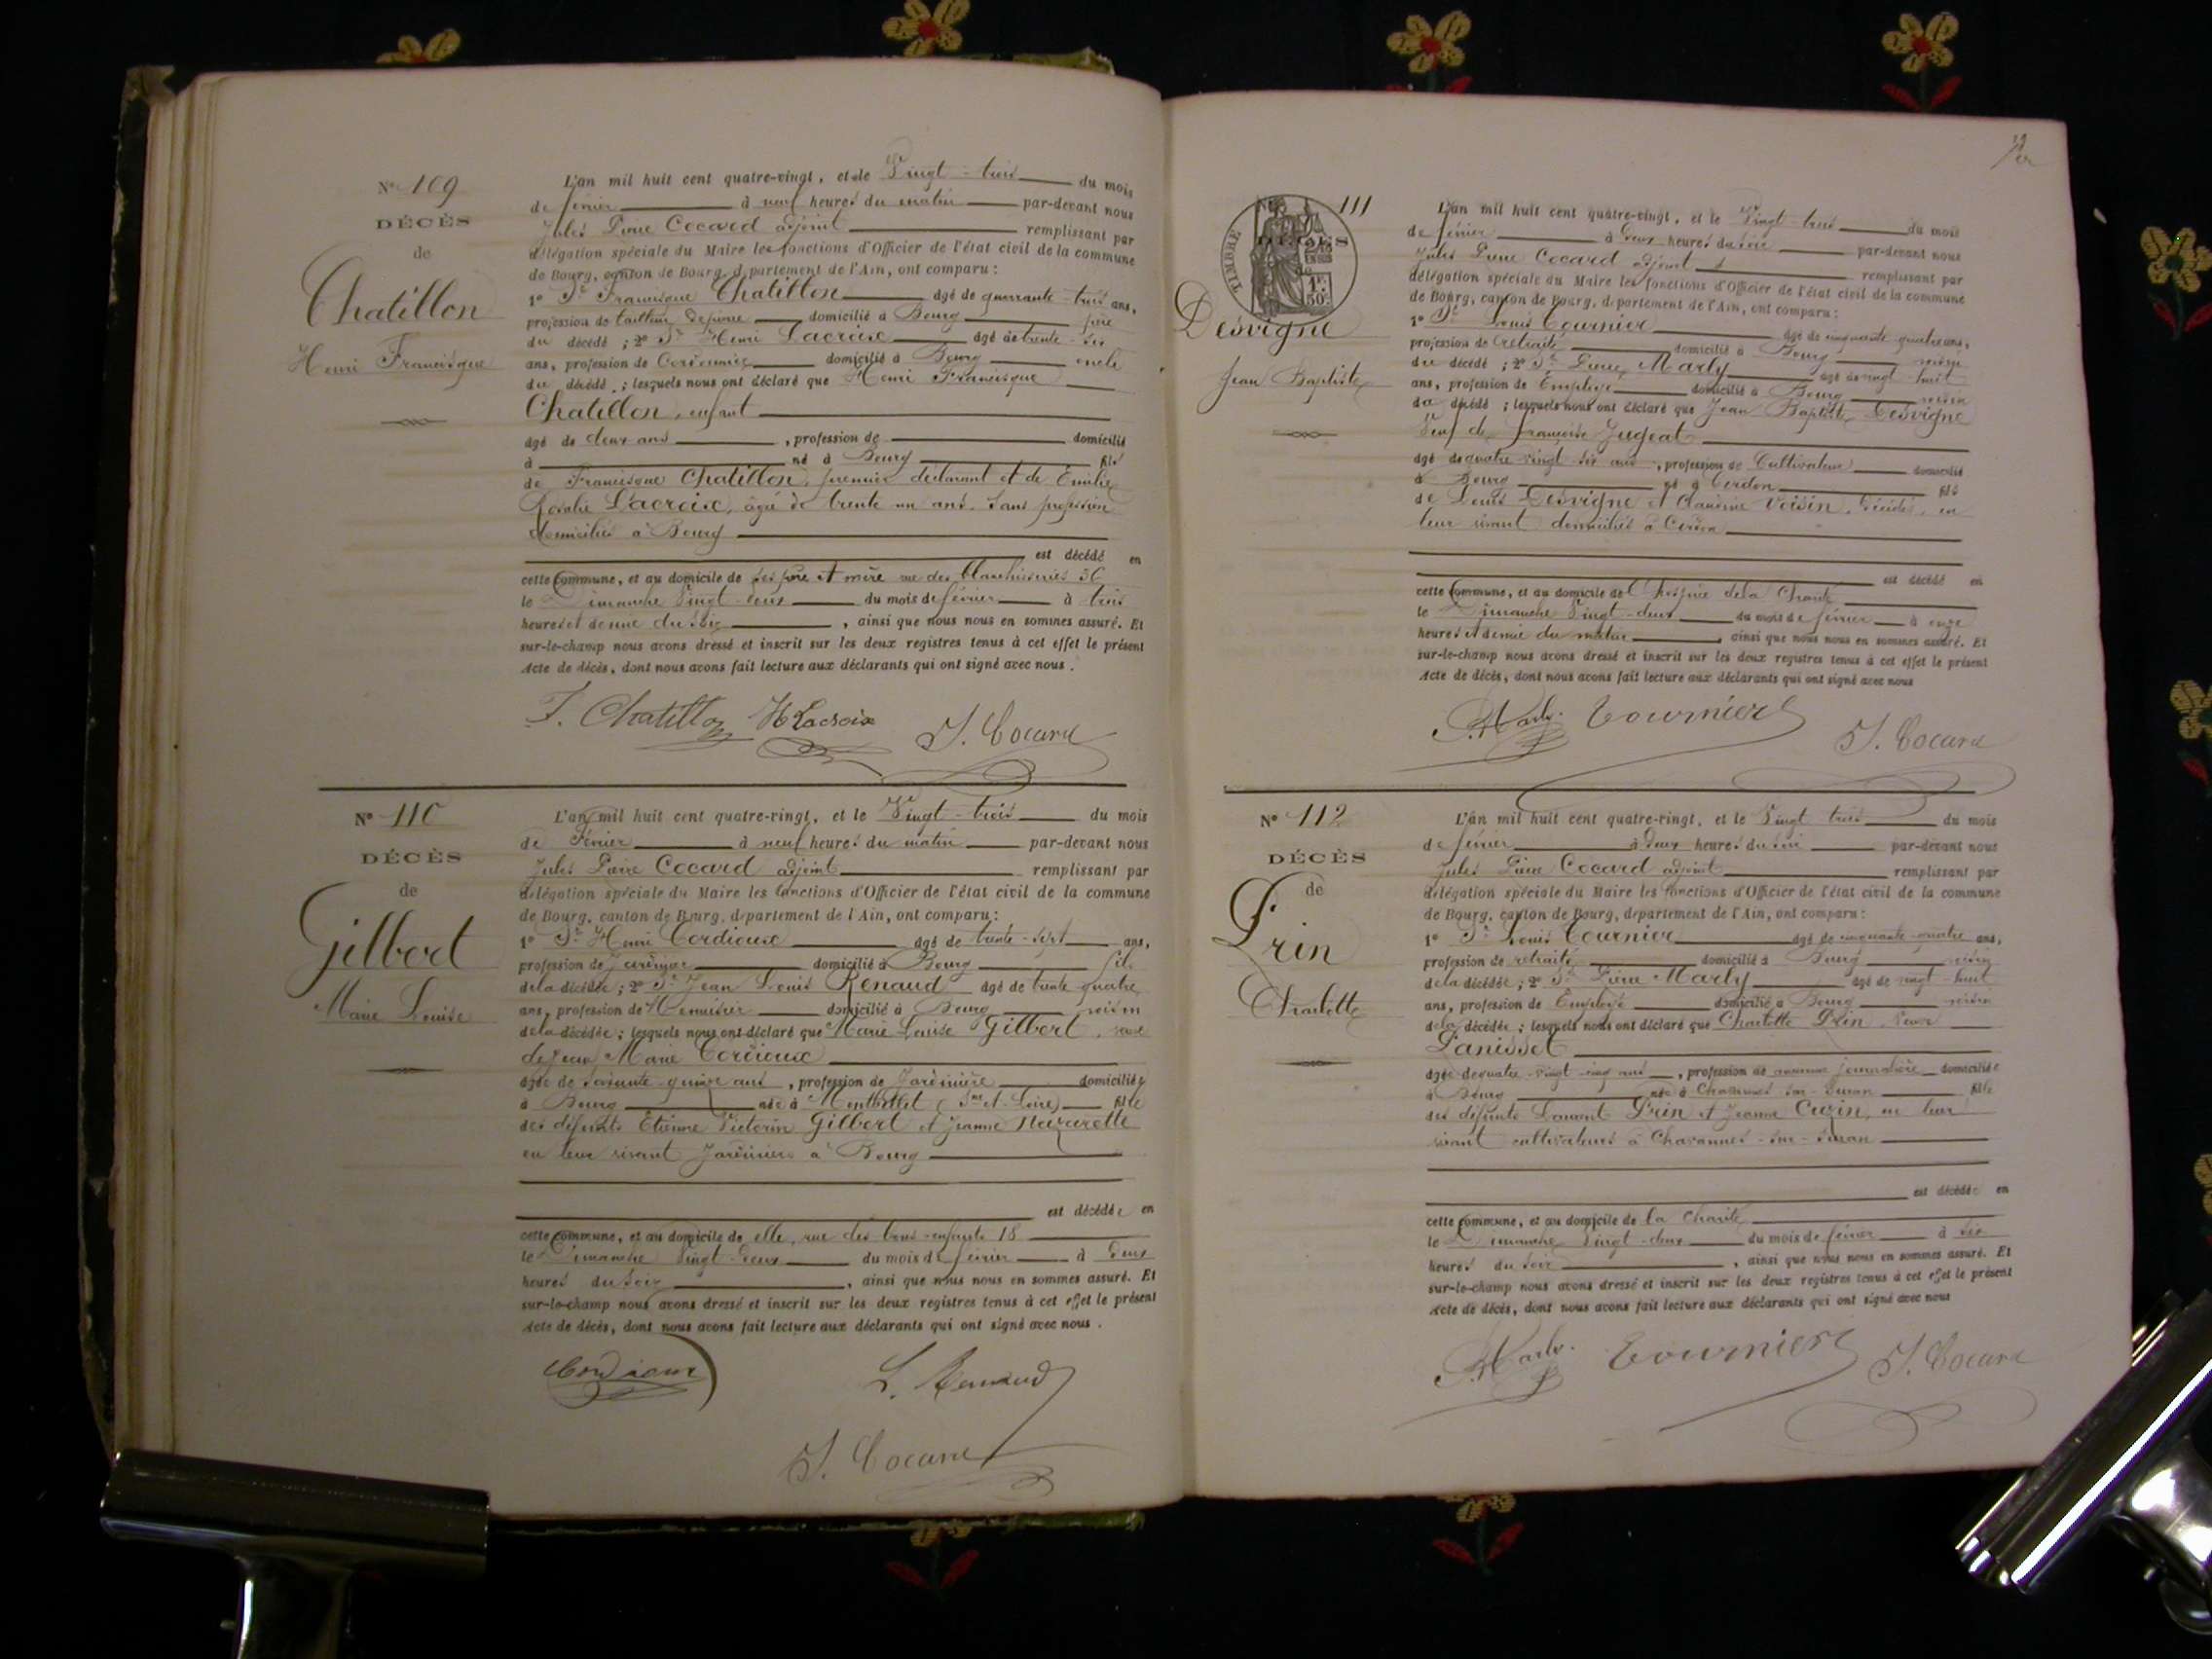 N° 109
DÉCÈS
de
Chatillon
Henri Francisque
L'an mil huit cent quatre-vingt, et le Vingt-trois du mois
de février à neuf heures du matin par-devant nous
Jules Pierre Cocard adjoint remplissant par
délégation spéciale du Maire les fonctions d'Officier de l'état civil de la commune
de Bourg, canton de Bourg, département de l'Ain, ont comparu :
1° Sr Francisque Chatillon âgé de quarante-trois ans,
profession de tailleur de pierre domicilié à Bourg père
du décédé ; 2° Sr Henri Lacroix âgé de trente-six
ans, profession de Cordonnier domicilié à Bourg oncle
du décédé ; lesquels nous ont déclaré que Henri Francisque
Chatillon, enfant
âgé de deux ans, profession de domicilié
à né à Bourg fils
de Francisque Chatillon, premier déclarant et de Emilie
Rosalie Lacroix, âgée de trente un ans, sans profession
domiciliés à Bourg
est décédé en
cette commune, et au domicile de ses père et mère rue des blanchisseries 36
le Dimanche Vingt-deux du mois de février à trois
heures et demie du soir, ainsi que nous nous en sommes assuré. Et
sur-le-champ nous avons dressé et inscrit sur les deux registres tenus à cet effet le présent
Acte de décès, dont nous avons fait lecture aux déclarants qui ont signé avec nous.
F. Chatillon H Lacroix J. Cocard
N° 110
DÉCÈS
de
Gilbert
Marie Louise
L'an mil huit cent quatre-vingt, et le Vingt-trois du mois
de Février à neuf heures du matin par-devant nous
Jules Pierre Cocard adjoint remplissant par
délégation spéciale du Maire les fonctions d'Officier de l'état civil de la commune
de Bourg, canton de Bourg, département de l'Ain, ont comparu :
1° Sr Henri Cordioux âgé de trente-sept ans,
profession de Jardinier domicilié à Bourg fils
de la décédée ; 2° Sr Jean Louis Renaud âgé de trente quatre
ans, profession de Menuisier domicilié à Bourg voisin
de la décédée ; lesquels nous ont déclaré que Marie Louise Gilbert, veuve
de Jean Marie Cordioux
âgée de soixante quinze ans, profession de Jardinière domiciliée
à Bourg née à Montbellet (Sne et Loire) fille
des défunts Etienne Victorin Gilbert et Jeanne Nazarette
en leur vivant Jardiniers à Bourg
est décédée en
cette commune, et au domicile de elle, rue des bons-enfants 18
le Dimanche Vingt-deux du mois de février à deux
heures du soir, ainsi que nous nous en sommes assuré. Et
sur-le-champ nous avons dressé et inscrit sur les deux registres tenus à cet effet le présent
Acte de décès, dont nous avons fait lecture aux déclarants qui ont signé avec nous.
Cordioux L. Renaud
J. Cocard
N° 111
DÉCÈS
TIMBRE
1F. 50c.
Desvigne
Jean Baptiste
L'an mil huit cent quatre-vingt, et le Vingt-trois du mois
de février à deux heures du soir par-devant nous
Jules Pierre Cocard adjoint remplissant par
délégation spéciale du Maire les fonctions d'Officier de l'état civil de la commune
de Bourg, canton de Bourg, département de l'Ain, ont comparu :
1° Sr Louis Tournier âgé de cinquante-quatre ans,
profession de retraité domicilié à Bourg voisin
du décédé ; 2° Sr Pierre Marly âgé de vingt-huit
ans, profession de Employé domicilié à Bourg voisin
du décédé ; lesquels nous ont déclaré que Jean Baptiste Desvigne
Veuf de Françoise Jugeat
âgé de quatre-vingt-six ans, profession de Cultivateur domicilié
à Bourg né à Cerdon fils
de Louis Desvigne et Claudine Voisin, décédés, en
leur vivant domiciliés à Cerdon
est décédé en
cette commune, et au domicile de l'hospice de la Charité
le Dimanche Vingt-deux du mois de février à onze
heures et demie du matin, ainsi que nous nous en sommes assuré. Et
sur-le-champ nous avons dressé et inscrit sur les deux registres tenus à cet effet le présent
Acte de décès, dont nous avons fait lecture aux déclarants qui ont signé avec nous
P. Marly. Tournier J. Cocard
N° 112
DÉCÈS
de
Prin
Charlotte
L'an mil huit cent quatre-vingt, et le Vingt trois du mois
de février à deux heures du soir par-devant nous
Jules Pierre Cocard adjoint remplissant par
délégation spéciale du Maire les fonctions d'Officier de l'état civil de la commune
de Bourg, canton de Bourg, département de l'Ain, ont comparu :
1° Sr Louis Tournier âgé de cinquante-quatre ans,
profession de retraité domicilié à Bourg voisin
de la décédée ; 2° Sr Pierre Marly âgé de vingt-huit
ans, profession de Employé domicilié à Bourg voisin
de la décédée ; lesquels nous ont déclaré que Charlotte Prin, veuve
Panisset
âgée de quatre-vingt-cinq ans, profession de ancienne journalière domiciliée
à Bourg née à Chavannes-sur-Suran fille
des défunts Laurent Prin et Jeanne Curin, en leur
vivant cultivateurs à Chavannes-sur-Suran
est décédée en
cette commune, et au domicile de la Charité
le Dimanche Vingt-deux du mois de février à six
heures du soir, ainsi que nous nous en sommes assuré. Et
sur-le-champ nous avons dressé et inscrit sur les deux registres tenus à cet effet le présent
Acte de décès, dont nous avons fait lecture aux déclarants qui ont signé avec nous
P. Marly. Tournier J. Cocard